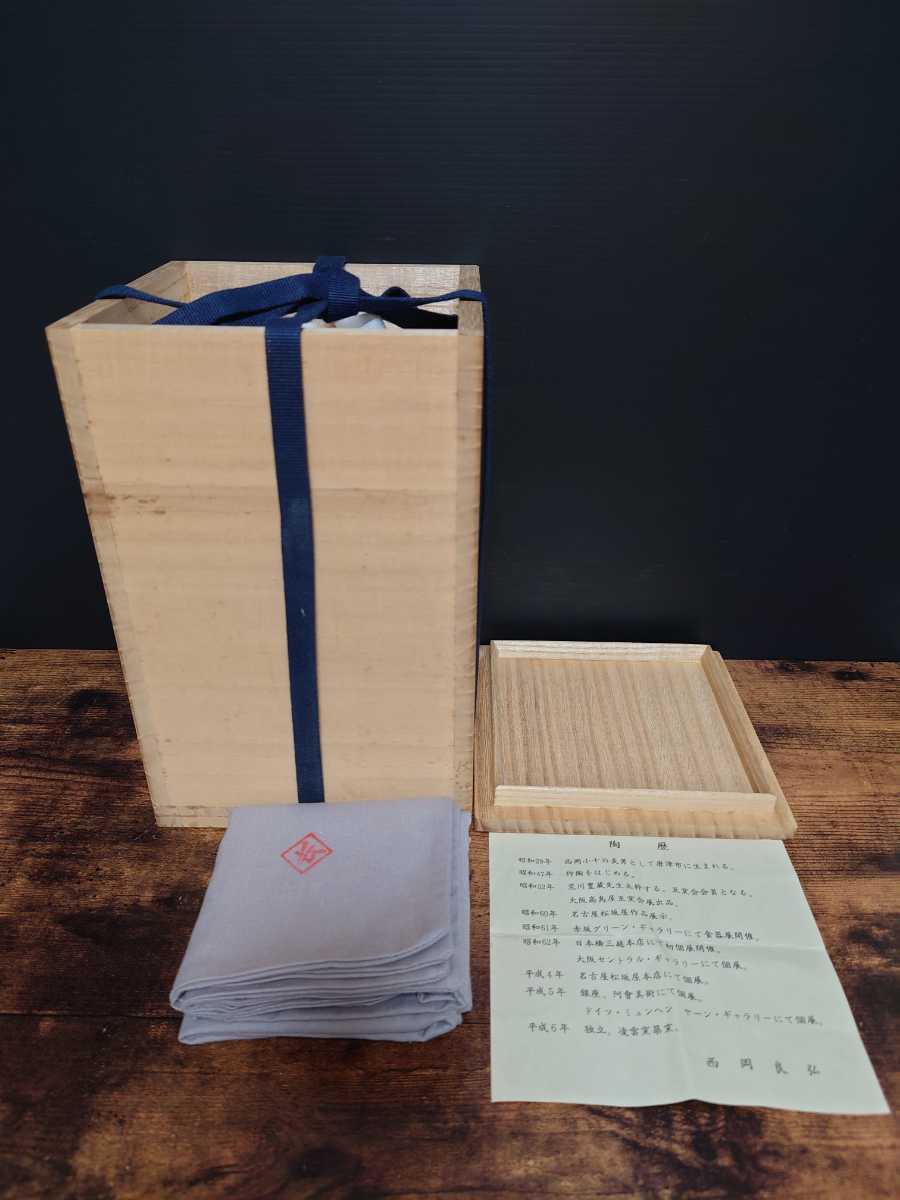 陶歴
昭和28年 西岡小十の長男として唐津市に生まれる。
昭和47年 作陶をはじめる。
昭和52年 荒川豊蔵先生に師事する、豆実会会員となる。
大阪高島屋豆実会展出品。
昭和60年 名古屋松坂屋作品展示。
昭和61年 赤坂グリーン・ギャラリーにて食器展開催。
昭和62年 日本橋三越本店にて初個展開催。
大阪セントラル・ギャラリーにて個展。
平成4年 名古屋松坂屋本店にて個展。
平成5年 銀座、阿曽美術にて個展。
ドイツ・ミュンヘン ケーン・ギャラリーにて個展。
平成6年 独立、凌雲窯築窯。
西岡良弘